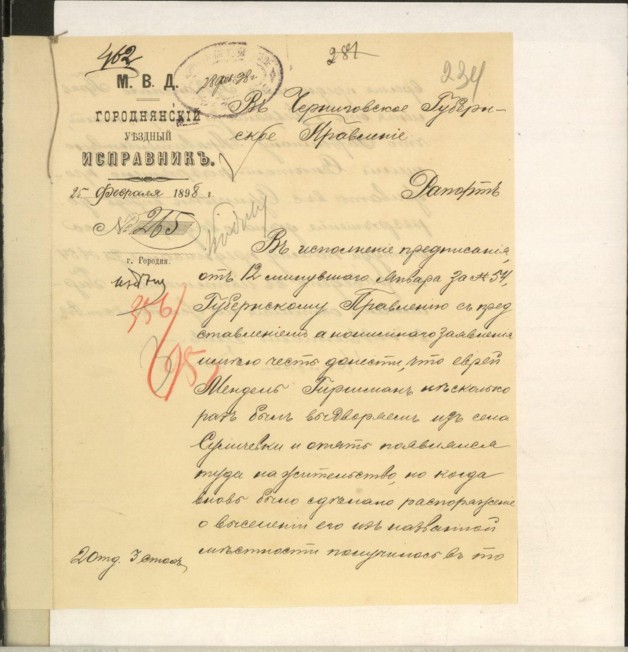 462
281
234
М. В. Д.
28 фев. 98 г.
ГОРОДНЯНСКІЙ
УѢЗДНЫЙ
ИСПРАВНИКЪ.
25 Февраля 1898 г.
№ 265
г. Городня.
Въ Черниговское Губерн-
ское Правленіе
Рапортъ
Въ исполненіе предписанія,
отъ 12 минувшаго Января за № 54,
Губернскому Правленію съ пред
ставленіемъ анонимнаго заявленія
имѣю честь донести, что еврей
Мендель Гиршманъ нѣсколько
разъ былъ выдворяемъ изъ села
и опять появлялся
туда на жительство, но когда
вновь было сдѣлано распоряженіе
о выселеніи его изъ названной
мѣстности получилось въ то
356
95
2 отд. 3 столъ